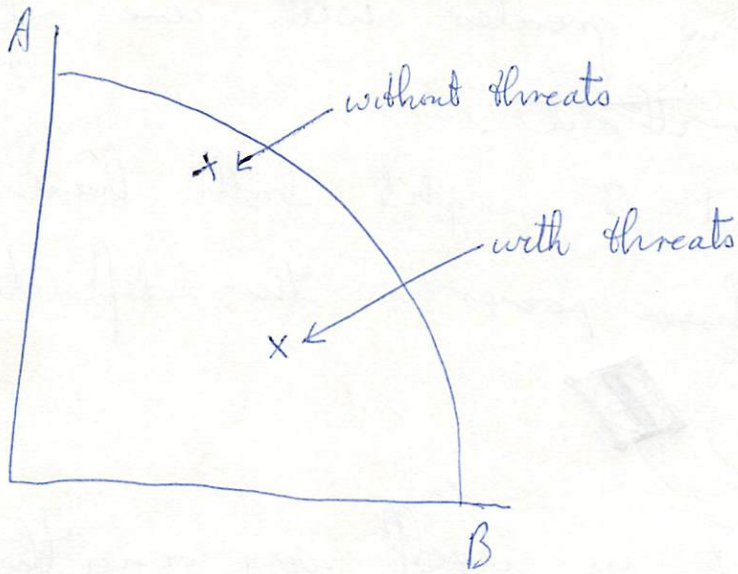 A
without threats
x
with threats
x
B